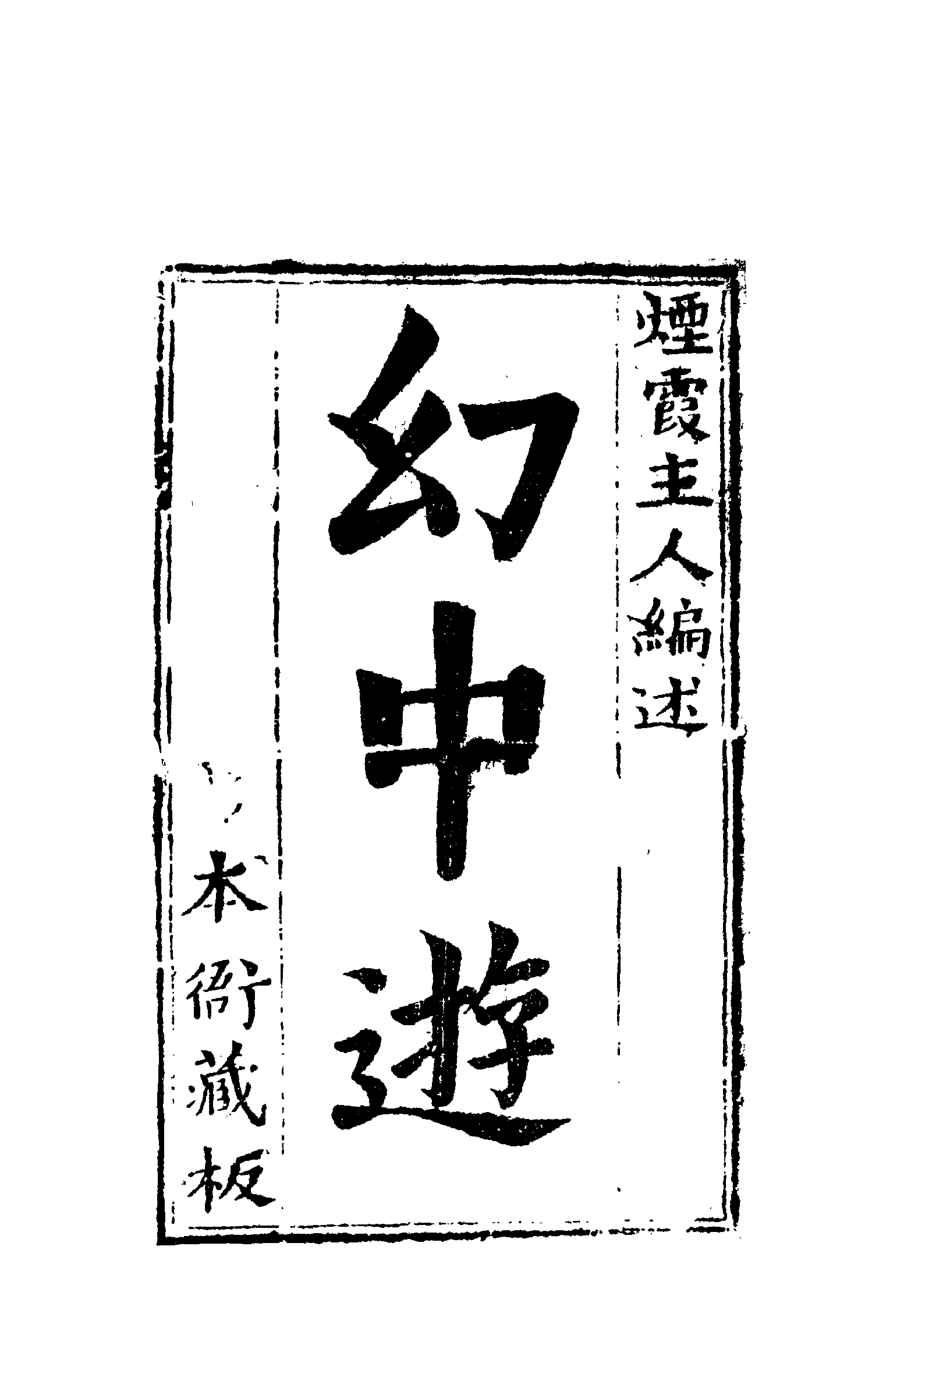 煙霞主人編述
幻中遊
本衙藏板